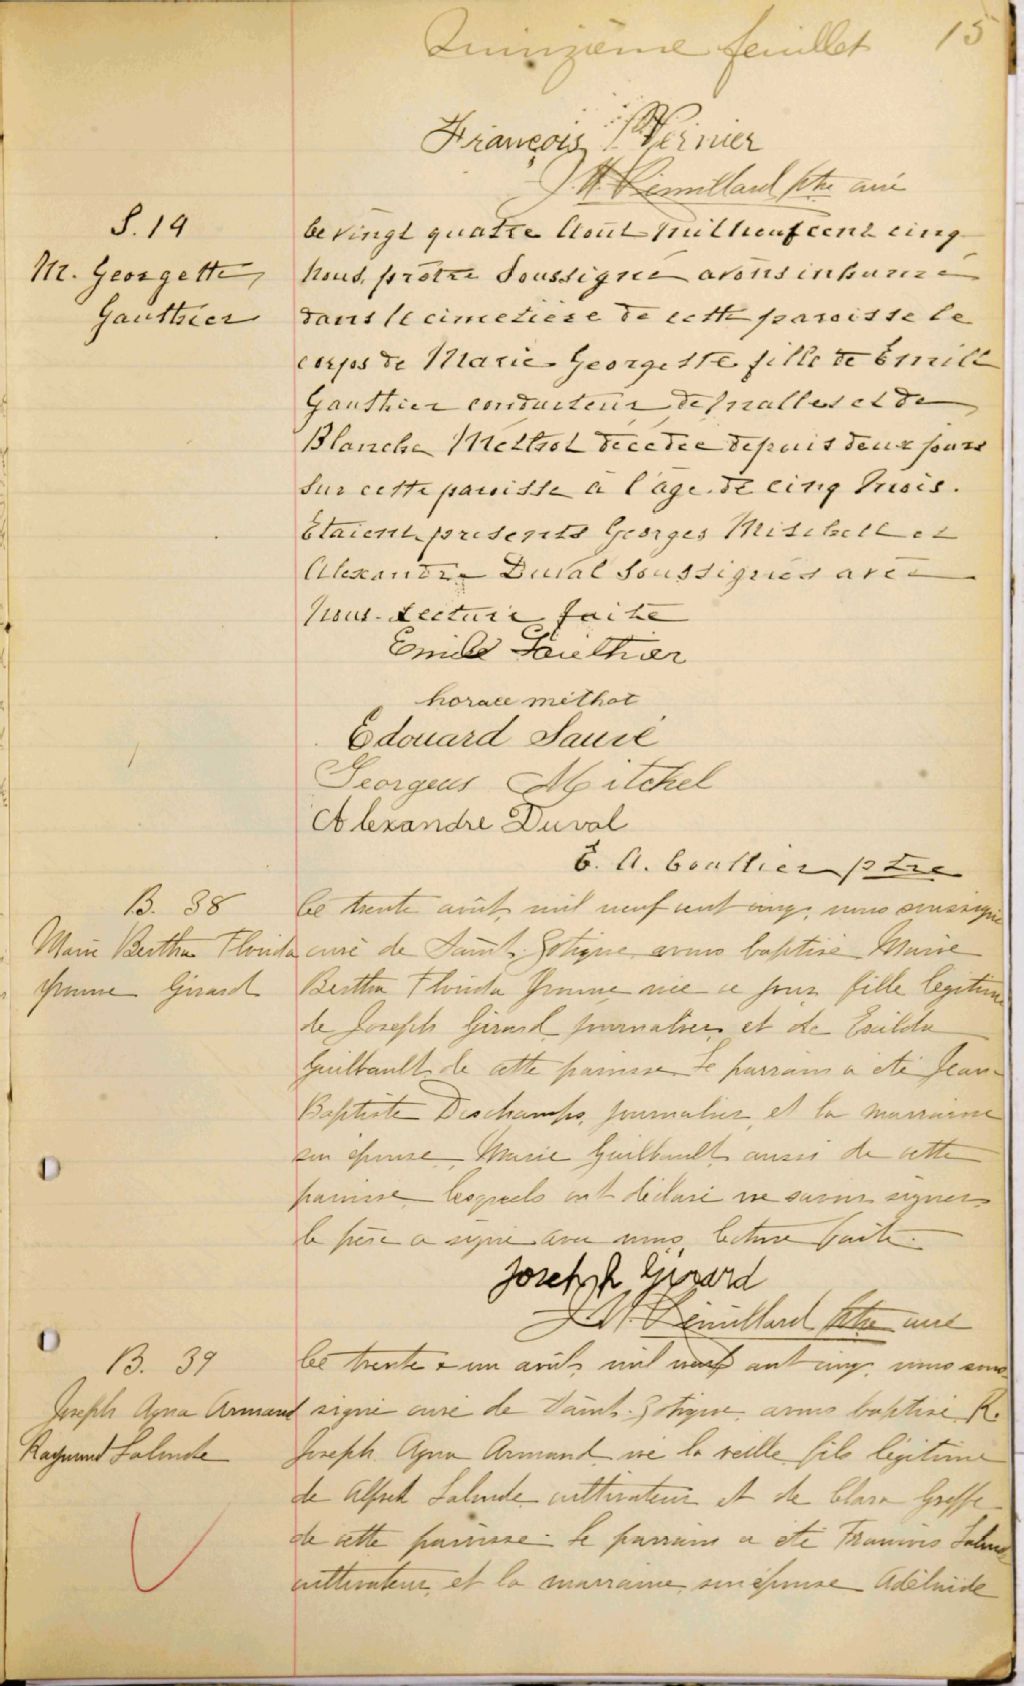 Quinzième feuillet 15
François Vernier
Rémillard ptre curé
S. 19
M. Georgette
Gauthier
Le vingt quatre Août mil neuf cent cinq
Nous, prêtre Soussigné avons inhumé
dans le cimetière de cette paroisse le
corps de Marie Georgette fille de Emile
Gauthier conducteur de malles et de
Blanche Méthot décédée depuis deux jours
sur cette paroisse à l'âge de cinq mois.
Etaient présents Georges Mitchell et
Alexandre Duval soussignés avec
Nous. Lecture faite
Emile Gauthier
horace méthot
Edouard Sauvé
Georgeus Mitchel
Alexandre Duval
E. A. Coallier ptre
B. 38
Marie Bertha Florida
Yvonne Girard
Le trente août, mil neuf cent cinq, nous soussigné
curé de Saint-Zotique avons baptisé Marie
Bertha Florida Yvonne née ce jour fille légitime
de Joseph Girard, journalier, et de Exilda
Guilbault de cette paroisse. Le parrain a été Jean-
Baptiste Deschamps, journalier, et la marraine
son épouse, Marie Guilbault, aussi de cette
paroisse, lesquels ont déclaré ne savoir signer,
le père a signé avec nous, lecture faite.
Joseph Girard
Rémillard ptre curé
B. 39
Joseph Agna Armand
Raymond Lalonde
Le trente & un août, mil neuf cent cinq, nous sous-
signé curé de Saint-Zotique, avons baptisé R.
Joseph Agna Armand, né la veille, fils légitime
de Alfred Lalonde cultivateur et de Clara Greffe
de cette paroisse. Le parrain a été Francois Lalonde
cultivateur, et la marraine, son épouse Adélaïde